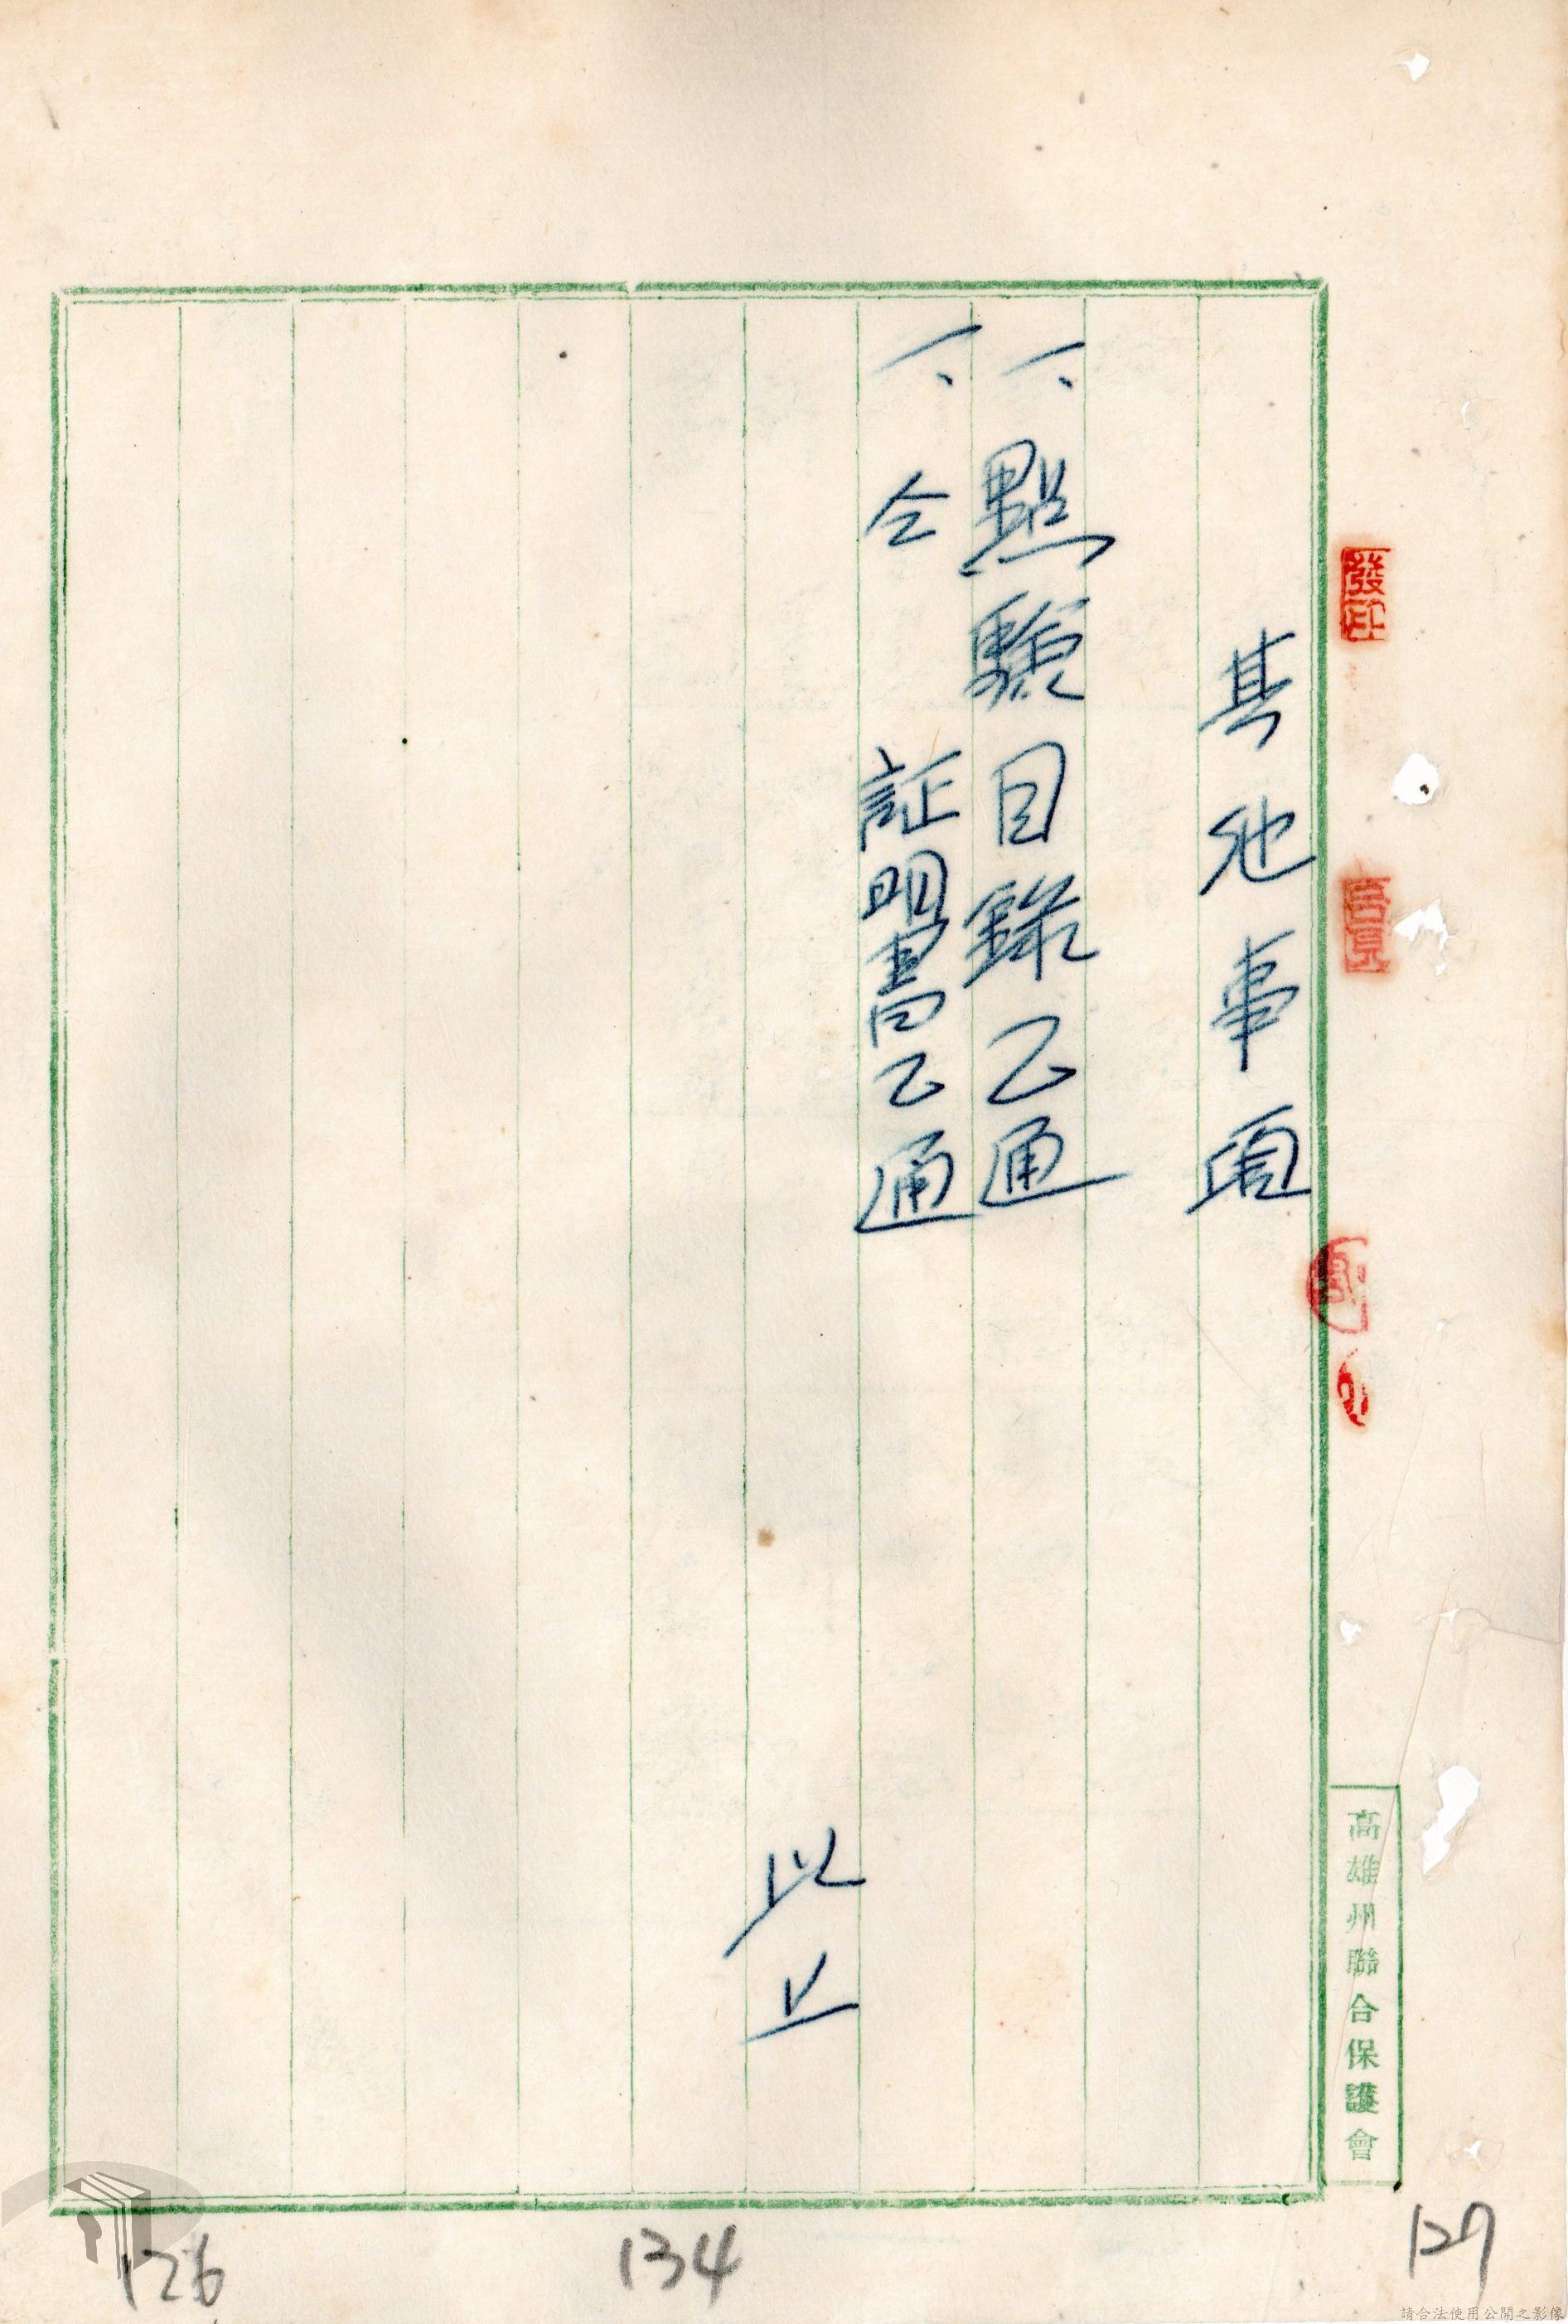 其他事項
一、點驗目錄乙通
一、仝 証明書乙通
以上
高雄州聯合保護會
126
134
127
請合法使用公開之影像